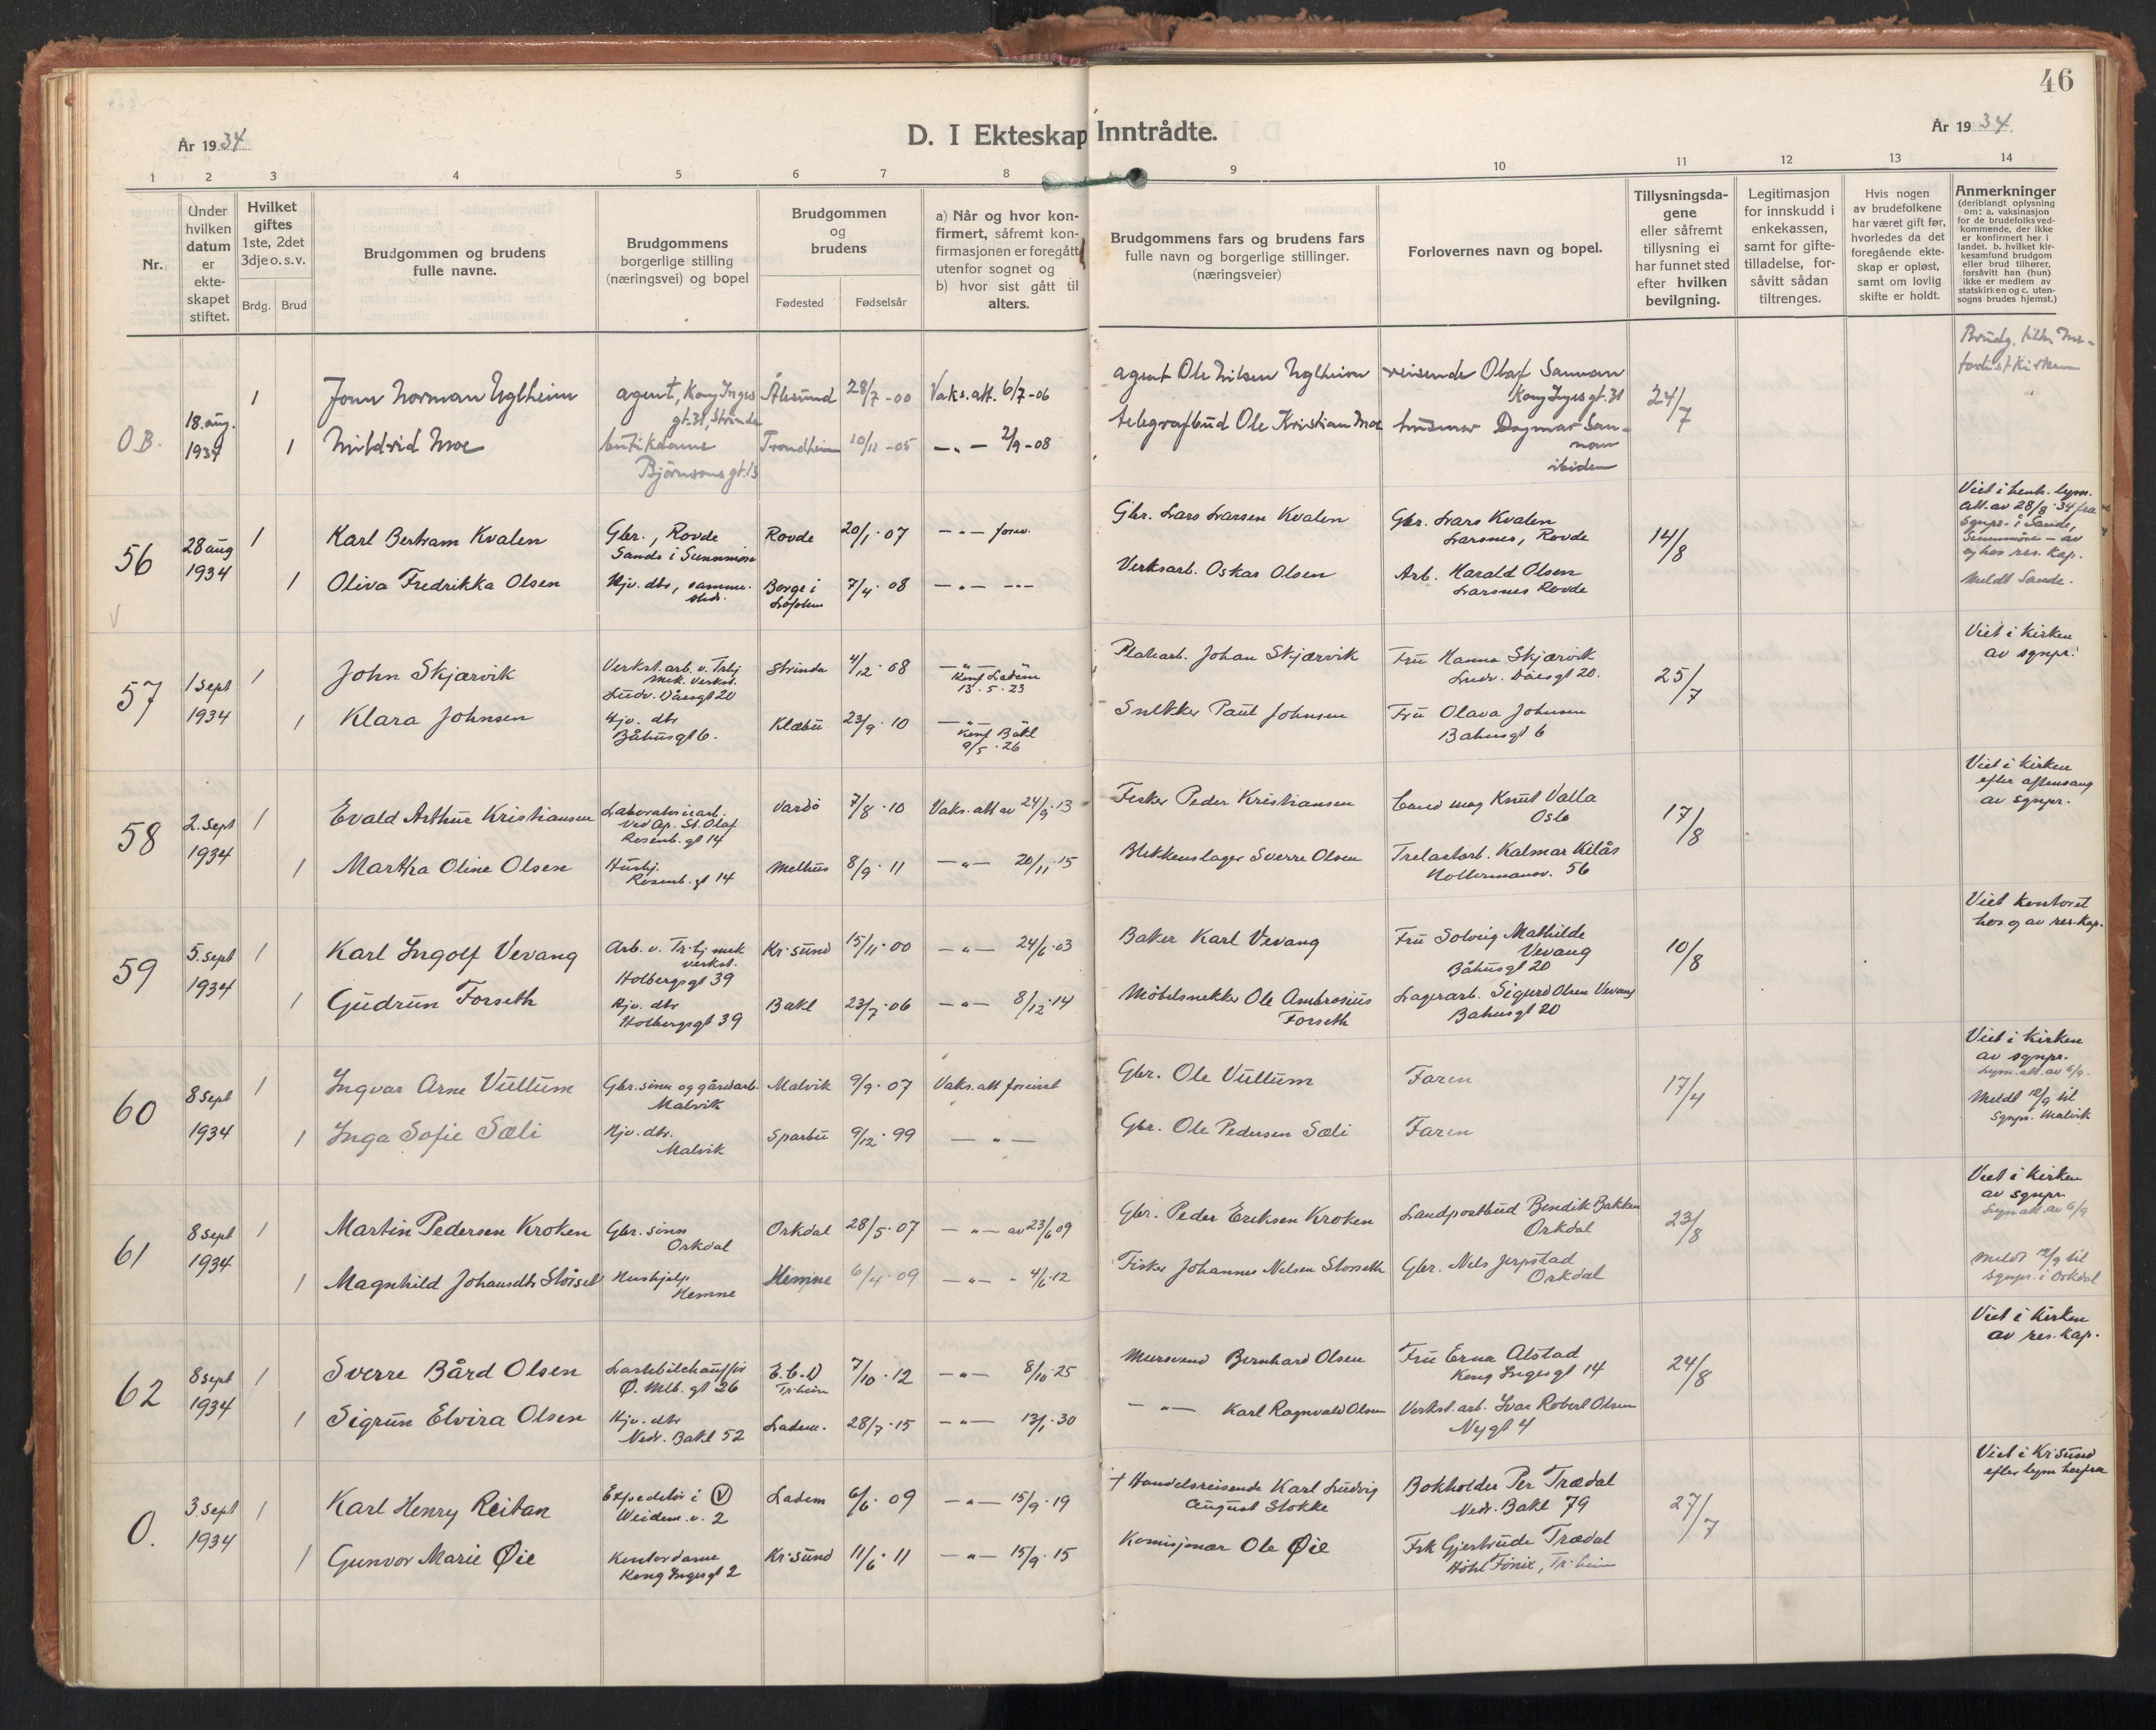 46
År 1934
D. I Ekteskap Inntrådte.
År 1934
1 2 3 4 5 6 7 8 9 10 11 12 13 14
Nr.
Under
hvilken
datum
er
ekte-
skapet
stiftet.
Hvilket
giftes
1ste, 2det
3dje o. s. v.
Brdg. Brud
Brudgommen og brudens
fulle navne.
Brudgommens
borgerlige stilling
(næringsvei) og bopel
Brudgommen
og
brudens
Fødested Fødselsår
a) Når og hvor kon-
firmert, såfremt kon-
firmasjonen er foregått
utenfor sognet og
b) hvor sist gått til
alters.
Brudgommens fars og brudens fars
fulle navn og borgerlige stillinger.
(næringsveier)
Forlovernes navn og bopel.
Tillysningsda-
gene
eller såfremt
tillysning ei
har funnet sted
efter hvilken
bevilgning.
Legitimasjon
for innskudd i
enkekassen,
samt for gifte-
tilladelse, for-
såvitt sådan
tiltrenges.
Hvis nogen
av brudefolkene
har været gift før,
hvorledes da det
foregående ekte-
skap er opløst,
samt om lovlig
skifte er holdt.
Anmerkninger
(deriblandt oplysning
om: a. vaksinasjon
for de brudefolksved-
kommende, der ikke
er konfirmert her i
landet. b. hvilket kir-
kesamfund brudgom
eller brud tilhører,
forsåvitt han (hun)
ikke er medlem av
statskirken og c. uten-
sogns brudes hjemst.)
O.B.
18. aug.
1934
1
Norman Uglheim
agent, Kong Inges
gt. 31, Strinda
Ålesund
28/7 -00
Vaks. att. 6/7 -06
agent Ole Nilsen Uglheim
reisende Olaf Sannan
Kong Inges gt. 31
24/7
1
Mildrid Moe
butikdame
Bjørnsons gt. 13
Trondheim
10/12 -05
— „ — 2/9 -08
telegrafbud Ole Kristian Moe
Dagmar San-
nan
ibidem
56
28 aug
1934
1
Karl Bertram Kvalen
Gbr., Rovde
Sande i Sunnmøre
Rovde
20/1 · 07
— „ — forev.
Gbr. Lars Larsen Kvalen
Gbr. Lars Kvalen
Larsnes, Rovde
14/8
av 28/8 · 34 fra
sgnpr. i Sande,
Sunnmøre — av
og hos res. kap.
Meldt Sande.
1
Oliva Fredrikka Olsen
Hjv. dtr, samme-
steds.
Borge i
Lofoten
7/4 · 08
— „ — —
Verksarb. Oskar Olsen
Arb. Harald Olsen
Larsnes Rovde
57
1 Sept
1934
1
John Skjærvik
Verkst. arb. v. Trhj
mek. verkst.
Ludv. Dåesgt 20
Strinda
4/12 · 08
— „ —
Konf Ladem
13 · 5 · 23
Platearb. Johan Skjærvik
Fru Hanna Skjærvik
Ludv. Dåesgt 20.
25/7
Viet i kirken
av sgnpr.
1
Klara Johnsen
Hjv. dtr
Båhusgt 6.
Klæbu
23/9 · 10
— „ —
Konf Bakl
9/5 · 26
Snekker Paul Johnsen
Fru Olava Johnsen
Bahusgt 6
58
2. Sept
1934
1
Evald Arthur Kristiansen
Laboratoriearb.
ved Ap. St. Olaf
Rosenb. gt 14
Vardø
7/8 · 10
Vaks. att av 24/9 · 13
Fisker Peder Kristiansen
Cand mag Knut Valla
Oslo
17/8
Viet i kirken
efter aftensang
av sgnpr.
1
Martha Oline Olsen
Hushj.
Rosenb. gt 14
Melhus
8/9 · 11
— „ — 20/11 · 15
Blikkenslager Sverre Olsen
Trelastarb. Kalmar Kilås
Nollermansv. 56
59
5. Sept
1934
1
Karl Ingolf Vevang
Arb. v. Tr.hj mek
verkst.
Holbergsgt 39
Kr.sund
15/11 · 00
— „ — 24/6 · 03
Baker Karl Vevang
Fru Solveig Mathilde
Vevang
Båhusgt 20
10/8
Viet kontoret
hos og av res. kap.
1
Gudrun Forseth
Hjv. dtr
Holbergsgt 39
Bakl
23/7 · 06
— „ — 8/12 · 14
Møbelsnekker Ole Ambrosius
Forseth
Lagerarb. Sigurd Olsen Vevang
Bahusgt 20
60
8 Sept
1934
1
Ingvar Arne Vullum
Gbr. sønn og gårdsarb.
Malvik
Malvik
9/9 · 07
Vaks. att forevist
Gbr. Ole Vullum
Faren
17/4
Viet i kirken
av sgnpr.
Lysn. att. av 6/9.
Meldt 12/9 til
sgnpr. Malvik
1
Inga Sofie Sæli
Hjv. dtr.
Malvik
Sparbu
9/12 · 99
— „ —
Gbr. Ole Pedersen Sæli
Faren
61
8 Sept
1934
1
Martin Pedersen Kroken
Gbr. sønn
Orkdal
Orkdal
28/5 · 07
— „ — av 23/6 09
Gbr. Peder Eriksen Kroken
Landpostbud Bendik Bakken
Orkdal
23/8
Viet i kirken
av sgnpr
Lysn att. av 6/9
Meldt 12/9 til
sgnpr. i Orkdal
1
Magnhild Johansdtr Storset
Hushjelp
Hemne
Hemne
6/4 · 09
— „ — „ 4/6 · 12
Fisker Johannes Nelsen Storseth
Gbr. Nils Jerpstad
Orkdal
62
8 Sept
1934
1
Sverre Bård Olsen
Lastebilchauffør
Ø. Mlb. gt 26
E.C.D
Tr.heim
7/10 · 12
— „ — 8/10 · 25
Mursvend Bernhard Olsen
Fru Erna Alstad
Kong Ingesgt 14
24/8
Viet i kirken
av res. kap.
1
Sigrun Elvira Olsen
Hjv. dtr
Nedr. Bakl 52
Ladem.
28/7 · 15
— „ — 13/1 · 30
— „ — Karl Ragnvald Olsen
Verkst. arb. Ivar Robert Olsen
Nygt 4
O.
3. Sept
1934
1
Karl Henry Reitan
Expeditør i V
Weidem. v. 2
Ladem
6/6 · 09
— „ — 15/9 · 19
+ Handelsreisende Karl Ludvig
August Stokke
Bokholder Per Trædal
Nedr. Bakl 79
27/7
Viet i Kr.sund
efter lysn herfra
1
Gunvor Marie Øie
Kontordame
Kong Ingesgt 2
Kr.sund
11/6 · 11
— „ — 15/9 · 15
Komisjonær Ole Øie
Frk Gjertrude Trædal
Hotel Fønix, Tr.heim